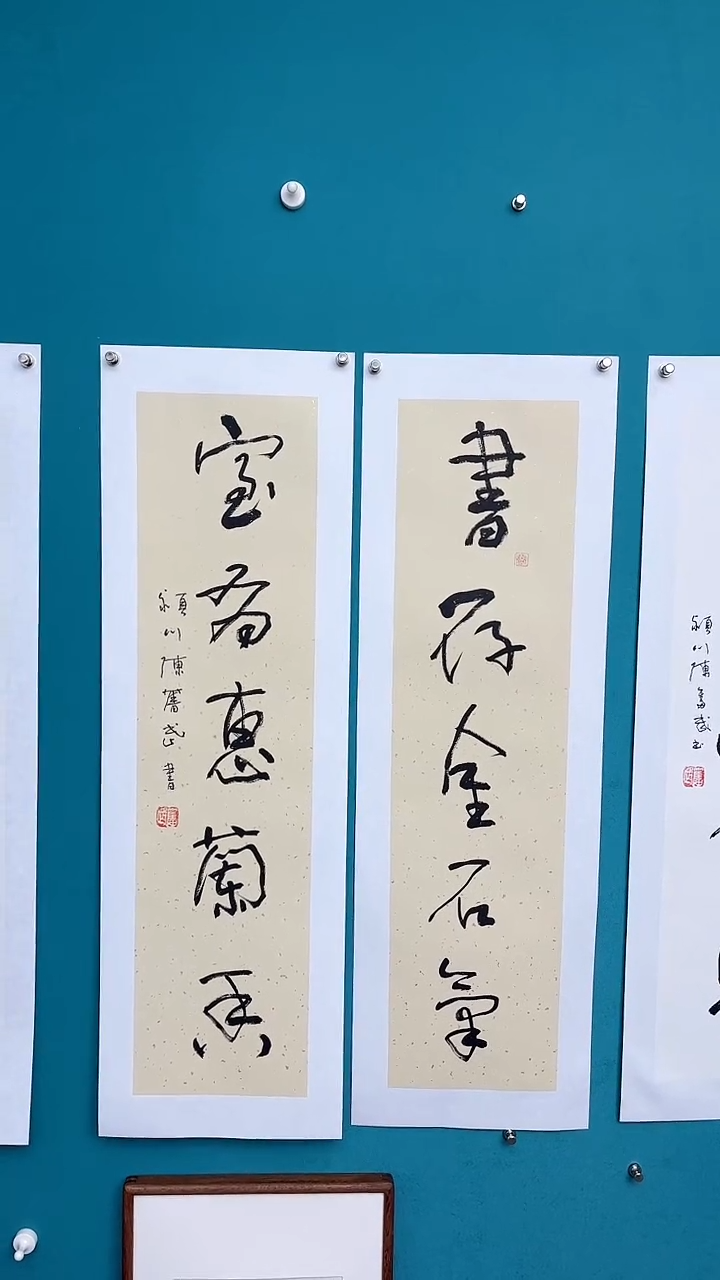 書存金石氣
室有蕙蘭香
潁川陳
書
潁川陳